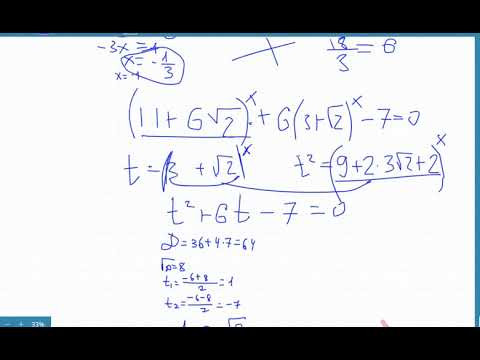 -3x=+1
x=-1/3
x=-1
18/3=6
(11+6√2)^x+6(3+√2)^x-7=0
t=(3+√2)^x t²=(9+2·3√2+2)^x
t²+6t-7=0
D=36+4·7=64
√D=8
t₁=(-6+8)/2=1
t₂=(-6-8)/2=-7
33%